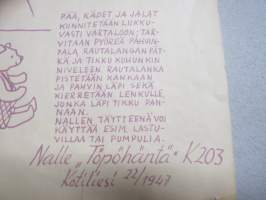 PÄÄ, KÄDET JA JALAT
KIINNITETÄÄN LIIKKU-
VASTI VARTALOON; TAR-
VITAAN PYÖREÄ PAHVI-
PALA, RAUTALANGAN PÄT-
KÄ JA TIKKU KUHUNKIN
NIVELEEN. RAUTALANKA
PISTETÄÄN KANKAAN
JA PAHVIN LÄPI SEKÄ
KIERRETÄÄN LENKULLE,
JONKA LÄPI TIKKU PAN-
NAAN.
NALLEN TÄYTTEENÄ VOI
KÄYTTÄÄ ESIM. LASTU-
VILLAA TAI PUMPULIA.
Nalle „Töpöhäntä" K203
Kotiliesi 22/1947